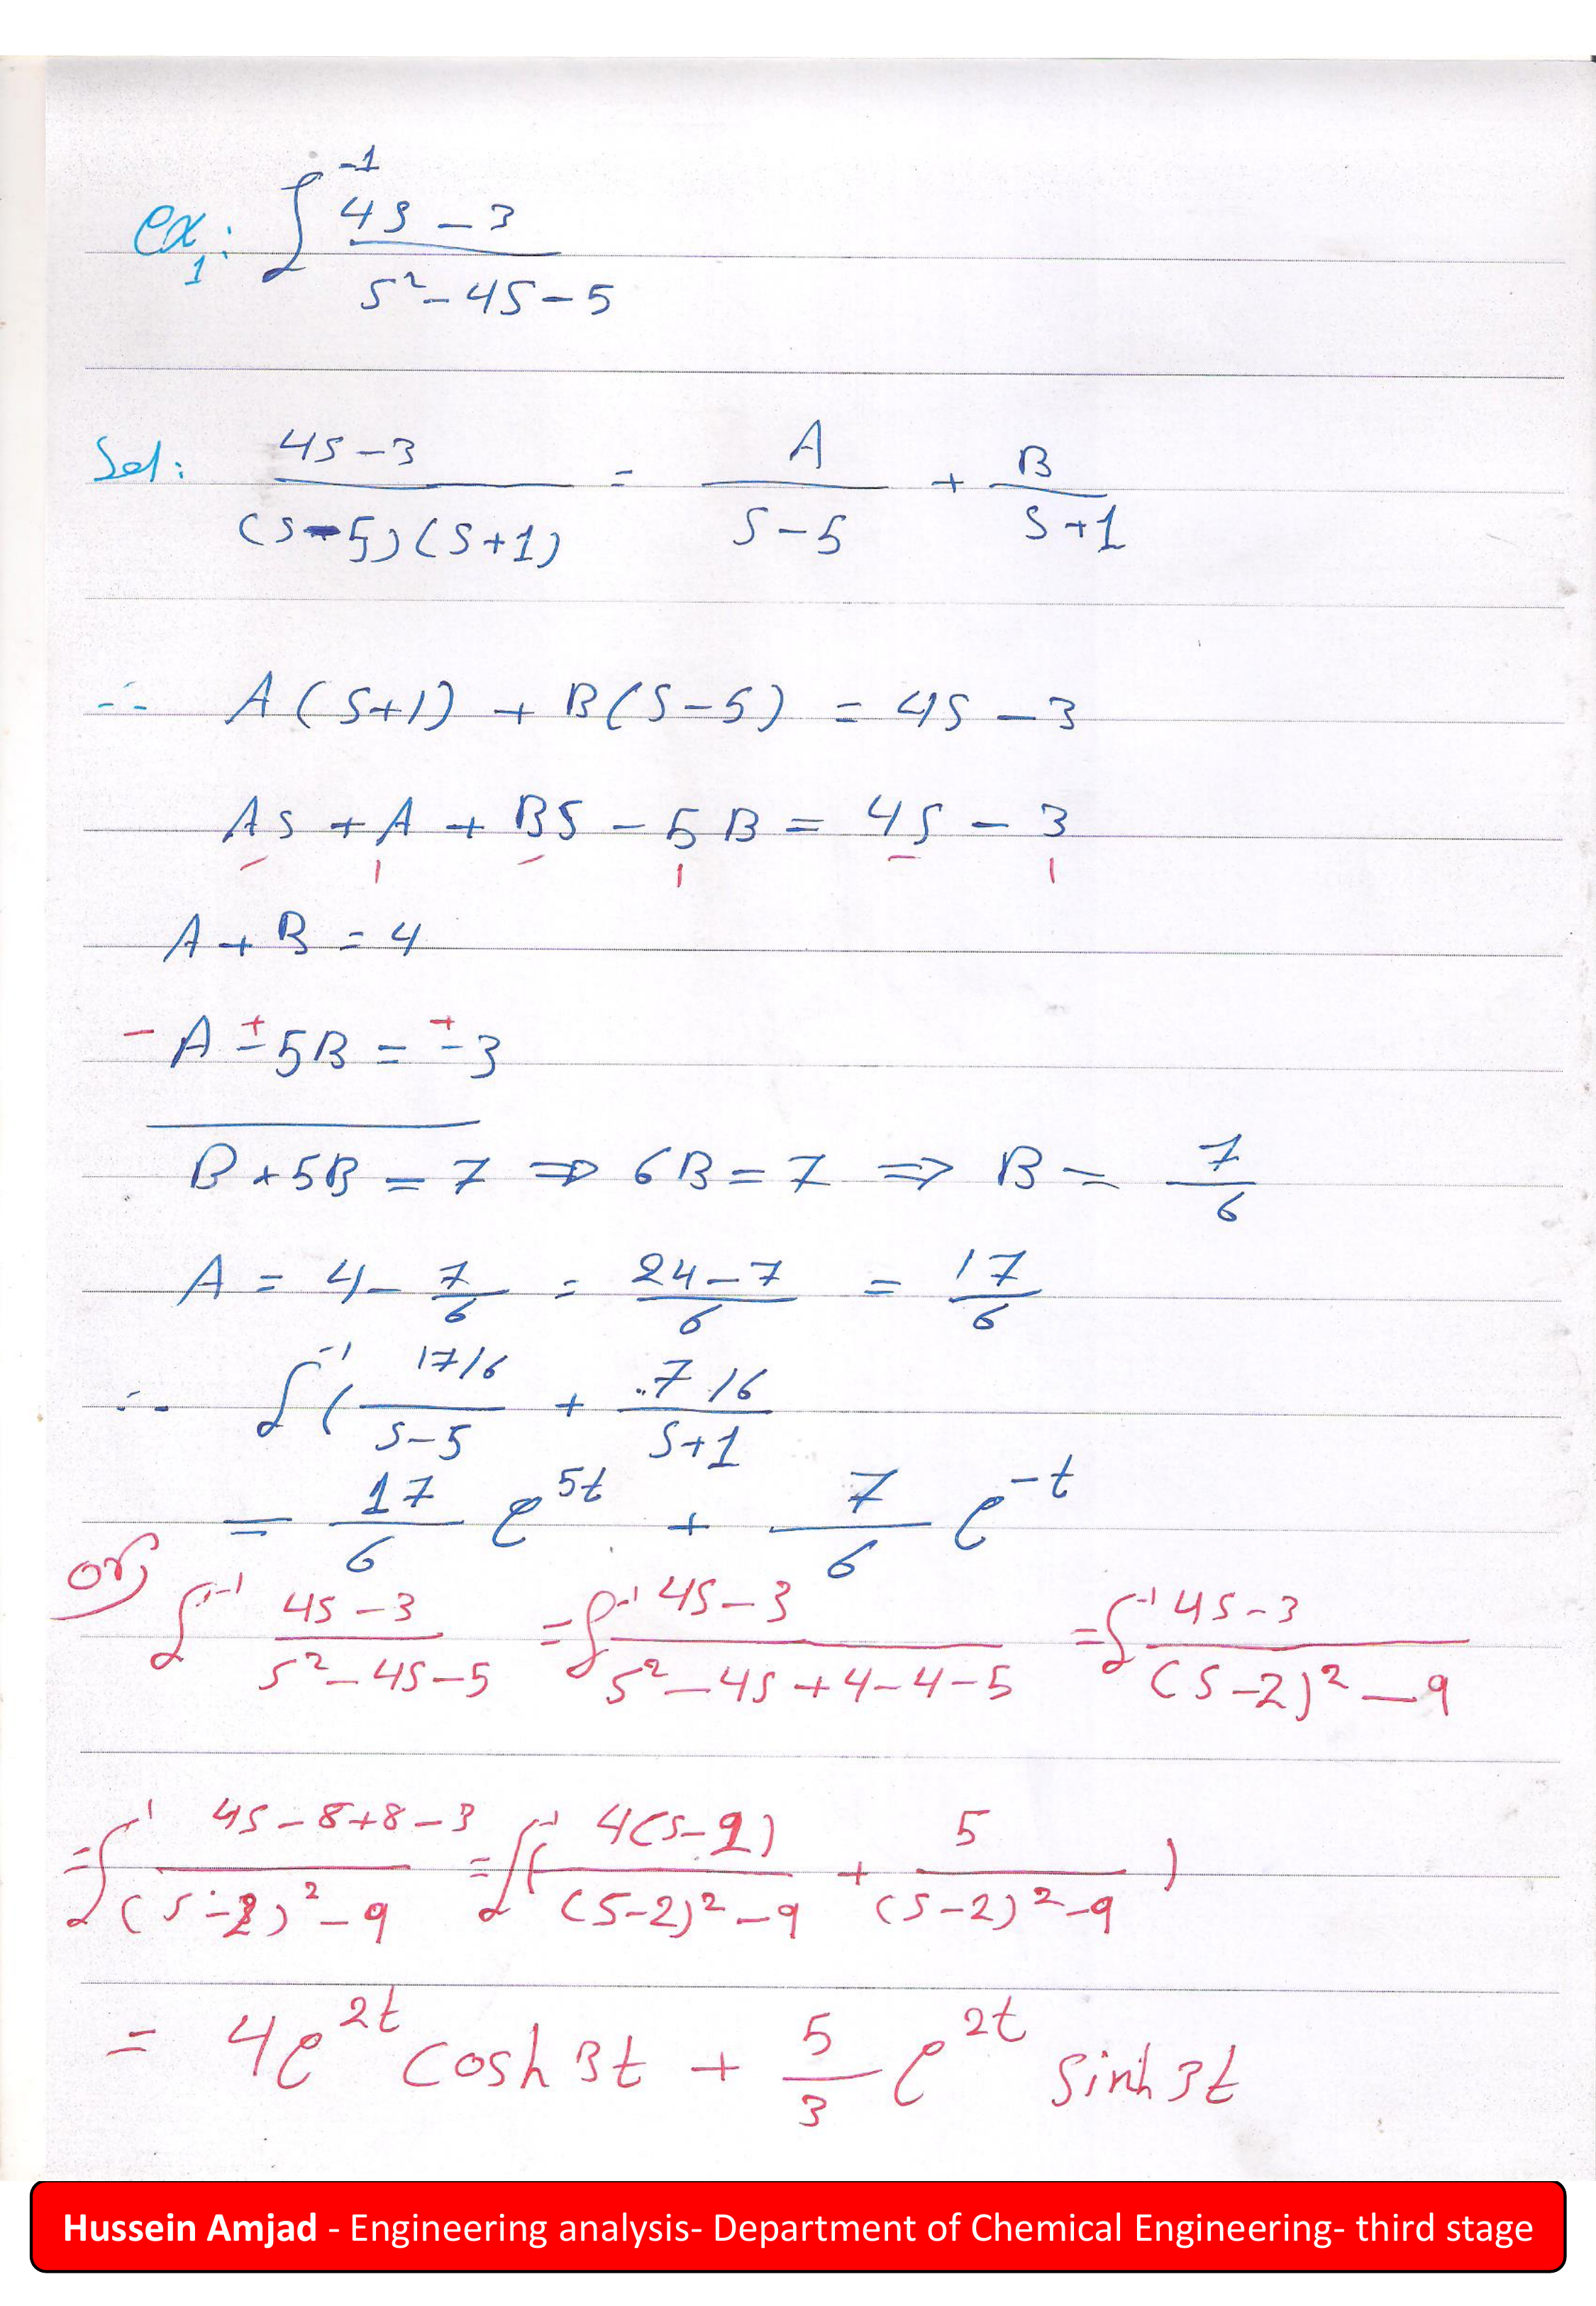 ex1: ℒ⁻¹ (4s - 3) / (s² - 4s - 5)
Sol: (4s - 3) / ((s - 5)(s + 1)) = A / (s - 5) + B / (s + 1)
∴ A(s+1) + B(s-5) = 4s - 3
As + A + Bs - 5B = 4s - 3
A + B = 4
- A ∓ 5B = ∓ 3
B + 5B = 7 ⇒ 6B = 7 ⇒ B = 7/6
A = 4 - 7/6 = (24 - 7)/6 = 17/6
∴ ℒ⁻¹ ( (17/6) / (s - 5) + (7/6) / (s + 1)
= 17/6 e^{5t} + 7/6 e^{-t}
or, ℒ⁻¹ (4s - 3) / (s² - 4s - 5) = ℒ⁻¹ (4s - 3) / (s² - 4s + 4 - 4 - 5) = ℒ⁻¹ (4s - 3) / ((s - 2)² - 9)
= ℒ⁻¹ (4s - 8 + 8 - 3) / ((s - 2)² - 9) = ℒ⁻¹ ( 4(s - 2) / ((s - 2)² - 9) + 5 / ((s - 2)² - 9) )
= 4e^{2t} cosh 3t + 5/3 e^{2t} sinh 3t
Hussein Amjad - Engineering analysis- Department of Chemical Engineering- third stage